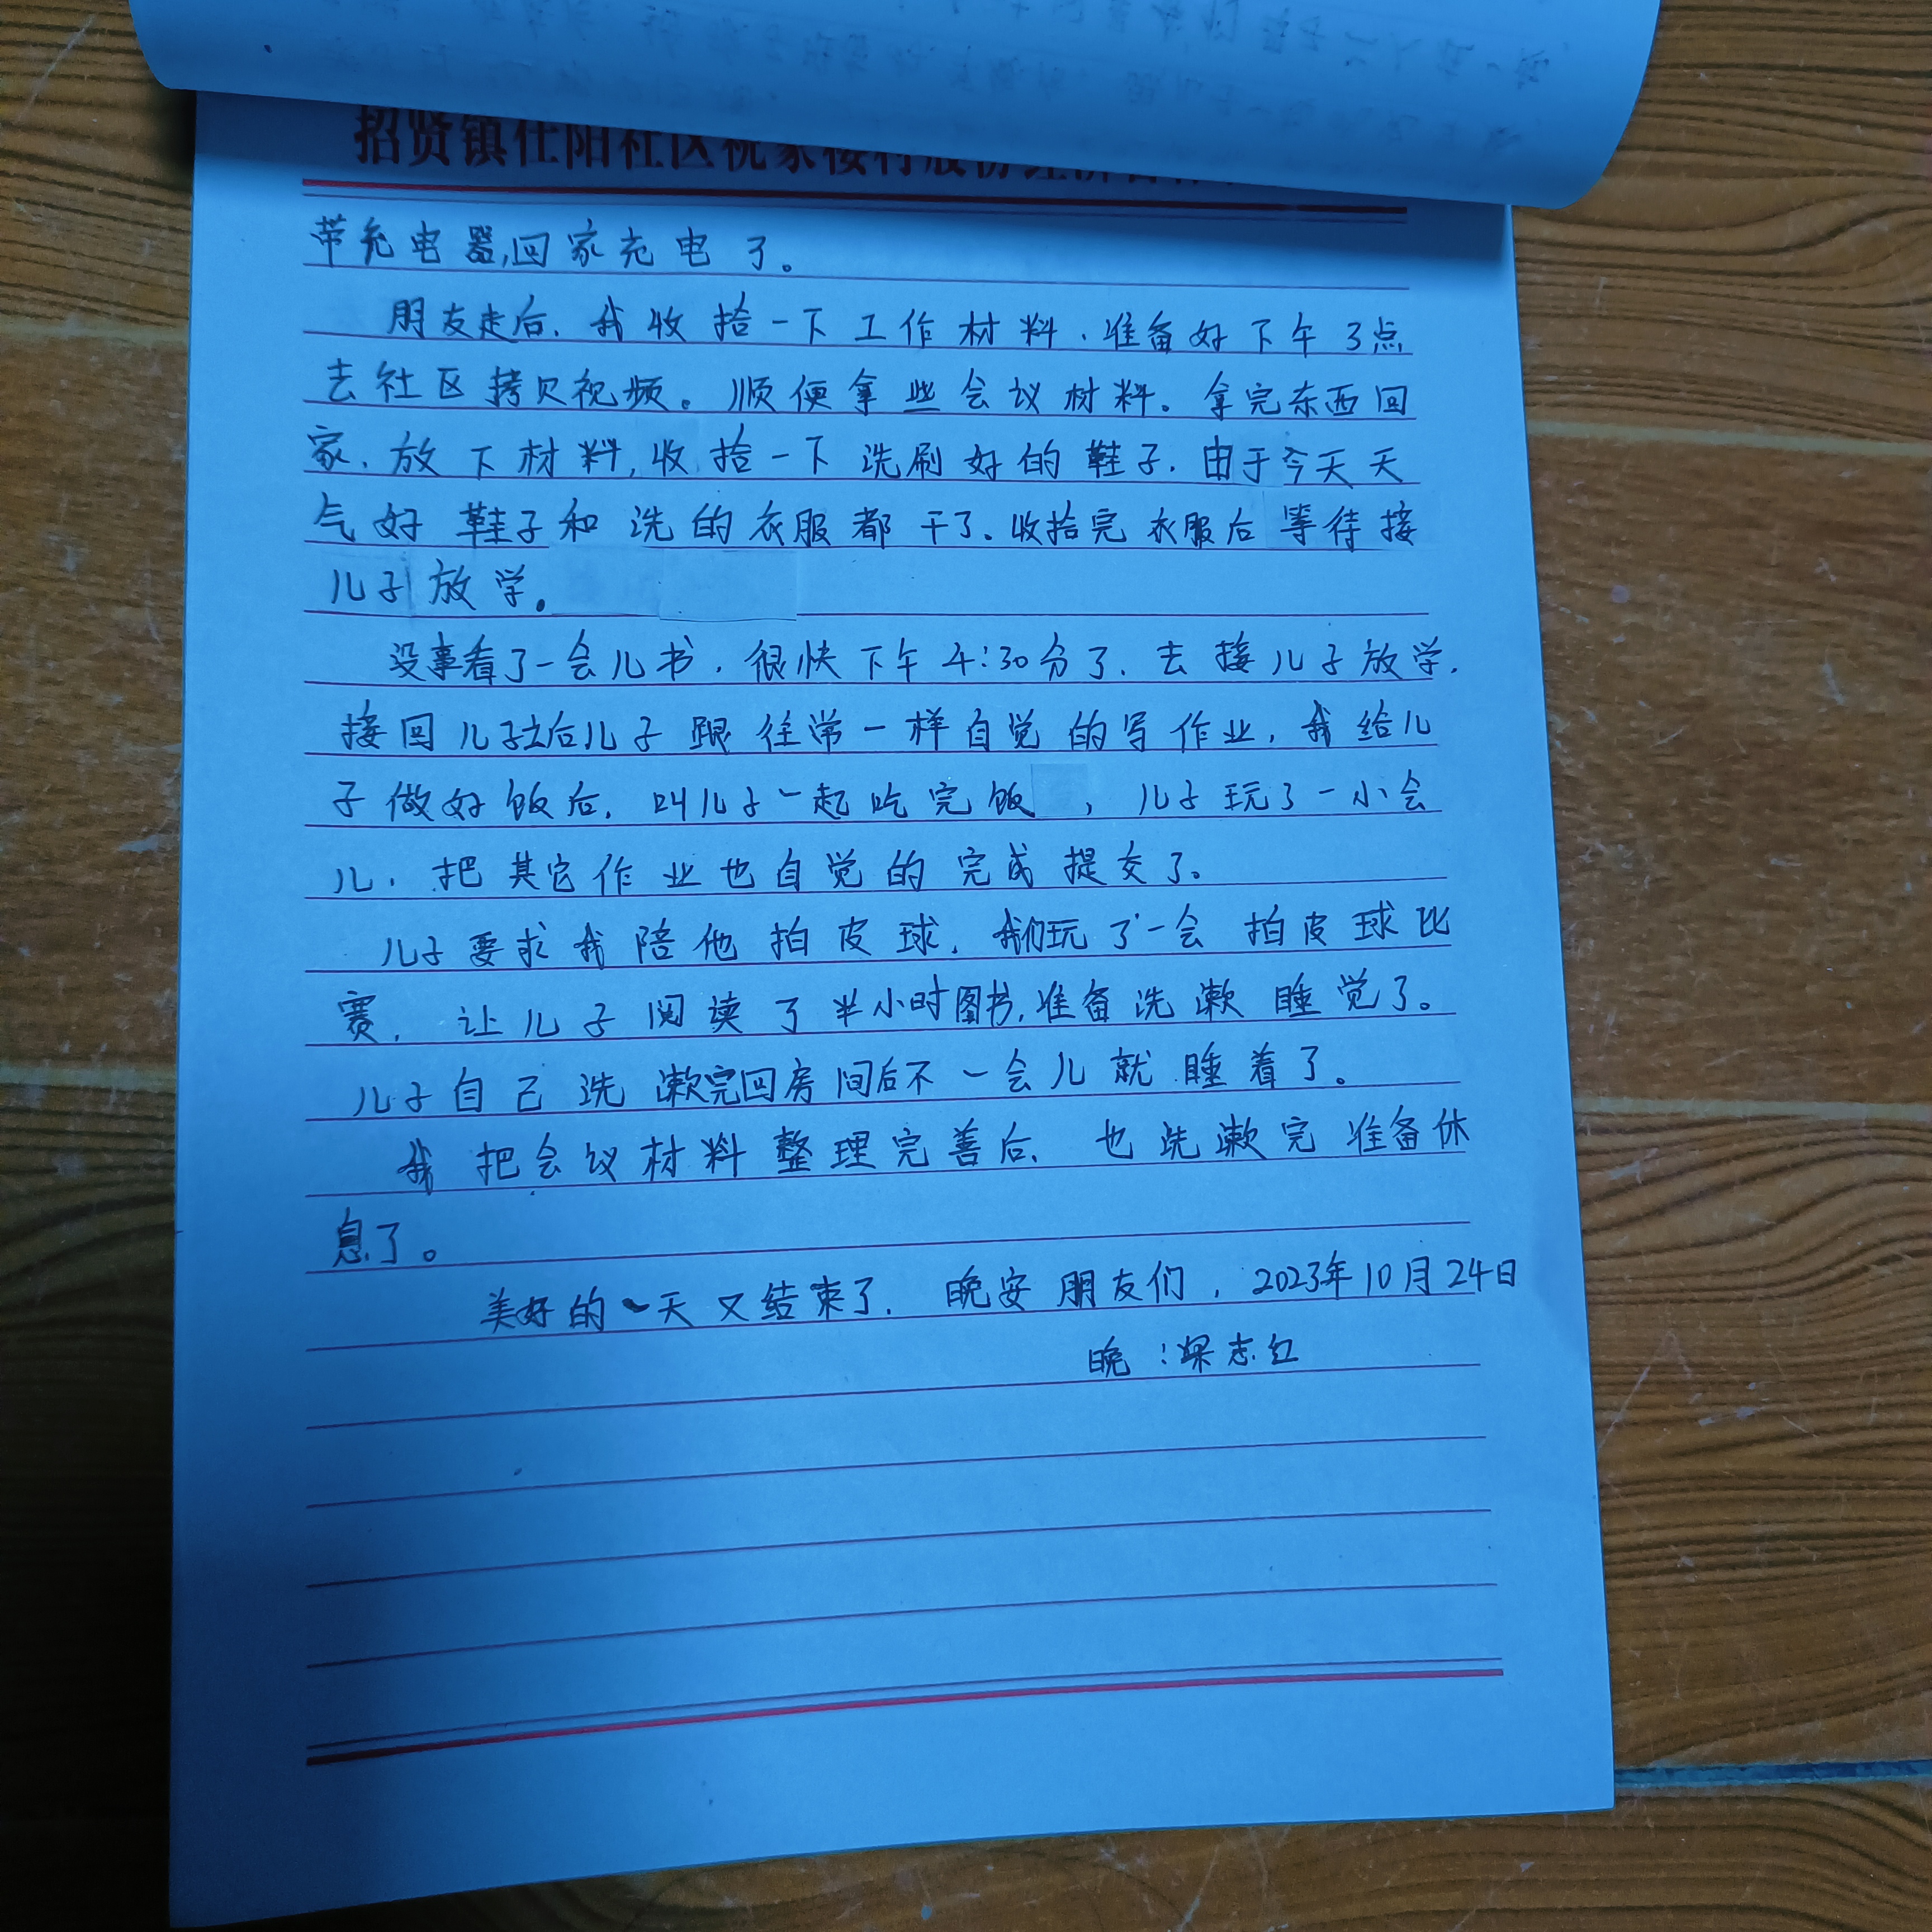 招贤镇仕阳社区祝家楼村股份经济合
带充电器,回家充电了。
朋友走后,我收拾一下工作材料,准备好下午3点
去社区拷贝视频。顺便拿些会议材料。拿完东西回
家,放下材料,收拾一下洗刷好的鞋子,由于今天天
气好鞋子和洗的衣服都干了。收拾完衣服后等待接
儿子放学。
没事看了一会儿书,很快下午4:30分了,去接儿子放学,
接回儿子后儿子跟往常一样自觉的写作业,我给儿
子做好饭后,叫儿子一起吃完饭,儿子玩了一小会
儿,把其它作业也自觉的完成提交了。
儿子要求我陪他拍皮球,我们玩了一会拍皮球比
赛,让儿子阅读了半小时图书,准备洗漱睡觉了。
儿子自己洗漱完回房间后不一会儿就睡着了。
我把会议材料整理完善后,也洗漱完准备休
息了。
美好的一天又结束了,晚安朋友们,2023年10月24日
晚:梁志红